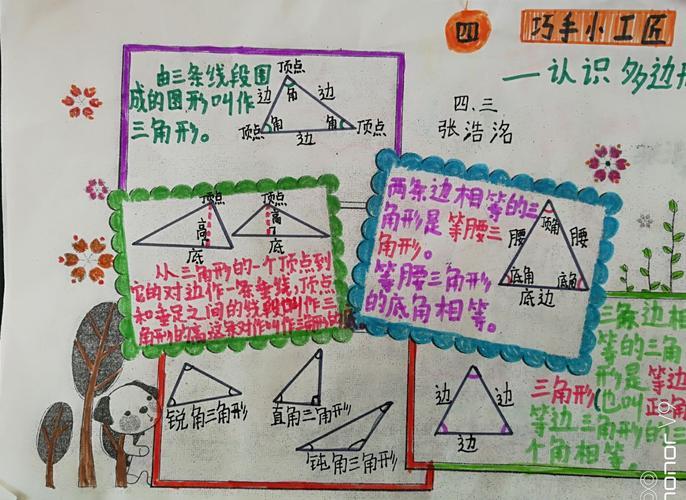 四 巧手小工匠
—认识多边形
四.三
张浩洺
由三条线段围
成的图形叫作
三角形。
顶点
边 角 边
顶点 角 角 顶点
边
顶点 顶点
高 高
底 底
从三角形的一个顶点到
它的对边作一条垂线,顶点
和垂足之间的线段叫作三
角形的高,这条对作叫作三角形的底。
两条边相等的三
角形是等腰三
角形。
等腰三角形
的底角相等。
顶角
腰 腰
底角 底角
底边
锐角三角形
直角三角形
钝角三角形
边 边
边
三条边相
等的三角
形是等边
三角形(也叫正角
等边三角形的三
个角相等。
honor V9